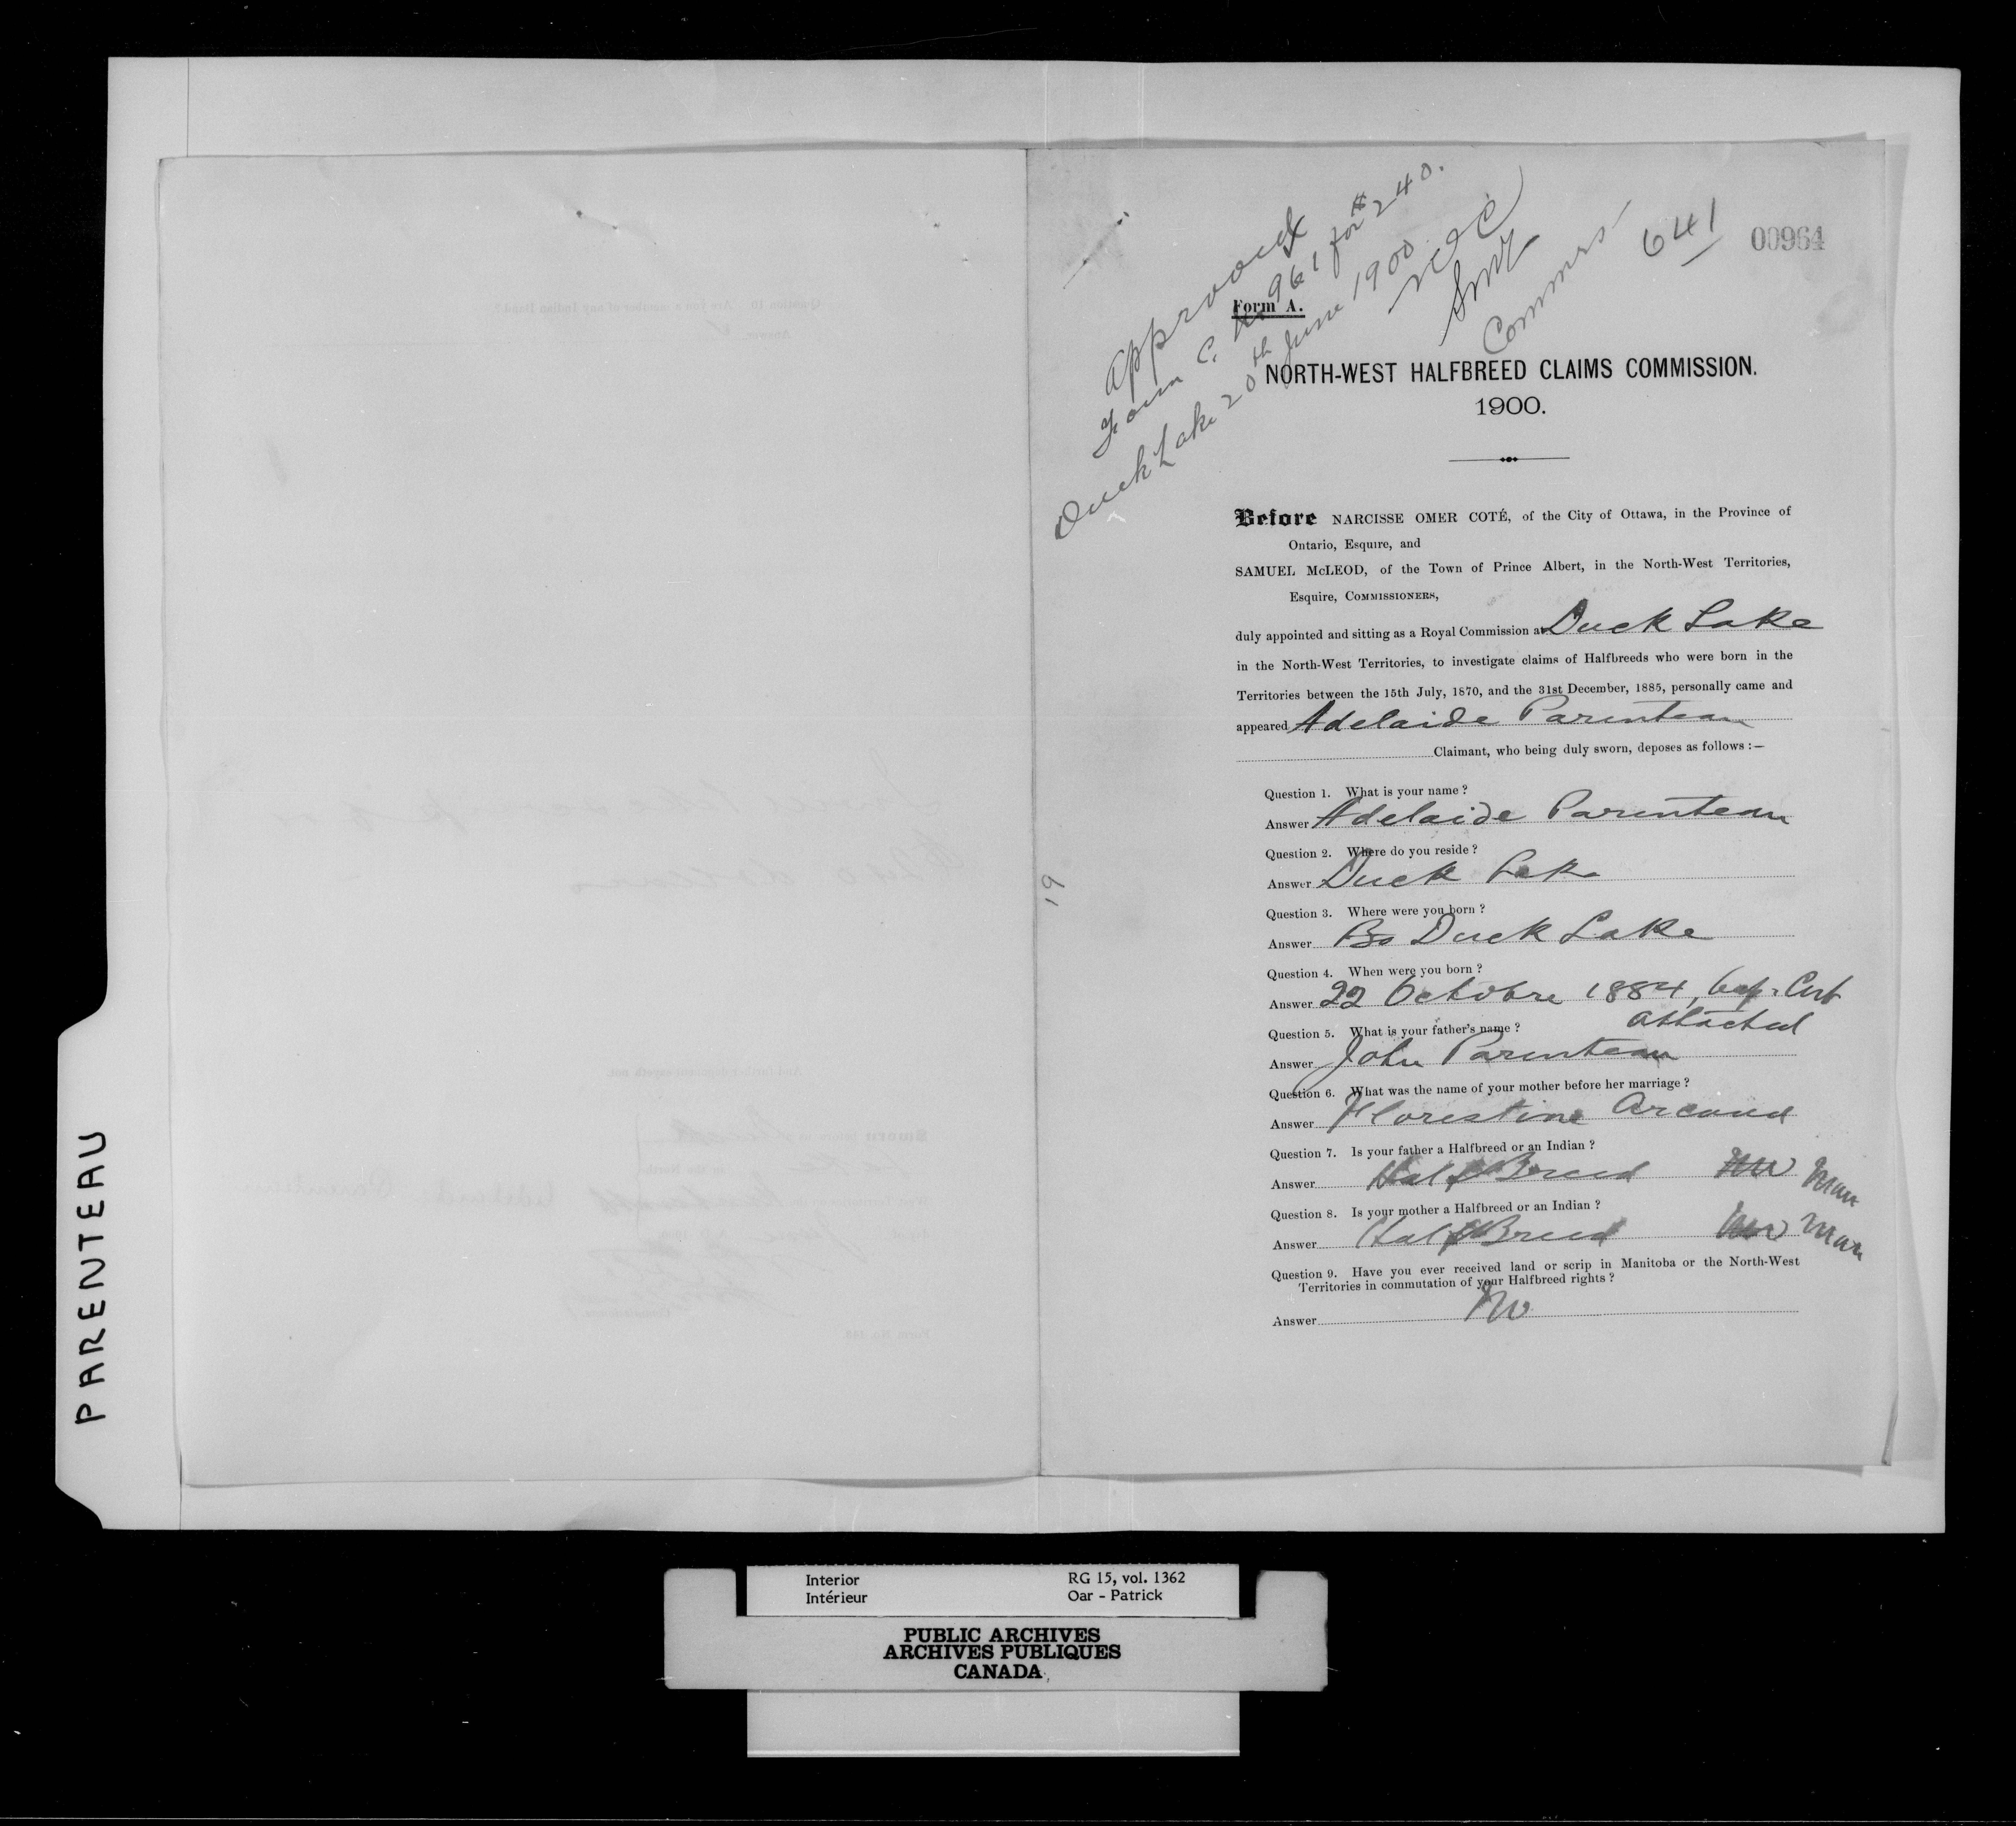 PARENTEAU
Approved
Form C. No 961 for $240.
Duck Lake 20th June 1900
NOC
Commrs
641
00964
Form A.
NORTH-WEST HALFBREED CLAIMS COMMISSION.
1900.
Before NARCISSE OMER COTÉ, of the City of Ottawa, in the Province of
Ontario, Esquire, and
SAMUEL McLEOD, of the Town of Prince Albert, in the North-West Territories,
Esquire, COMMISSIONERS,
duly appointed and sitting as a Royal Commission at Duck Lake
in the North-West Territories, to investigate claims of Halfbreeds who were born in the
Territories between the 15th July, 1870, and the 31st December, 1885, personally came and
appeared Adelaide Parenteau
Claimant, who being duly sworn, deposes as follows :—
Question 1. What is your name ?
Answer Adelaide Parenteau
Question 2. Where do you reside ?
Answer Duck Lake
Question 3. Where were you born ?
Answer Duck Lake
Question 4. When were you born ?
Answer 22 Octobre 1884, Bap. Cert
attached
Question 5. What is your father's name ?
Answer John Parenteau
Question 6. What was the name of your mother before her marriage ?
Answer Florestine Arcand
Question 7. Is your father a Halfbreed or an Indian ?
Answer Half Breed Man
Question 8. Is your mother a Halfbreed or an Indian ?
Answer Half Breed Man
Question 9. Have you ever received land or scrip in Manitoba or the North-West
Territories in commutation of your Halfbreed rights ?
Answer No
19
Interior RG 15, vol. 1362
Intérieur Oar - Patrick
PUBLIC ARCHIVES
ARCHIVES PUBLIQUES
CANADA